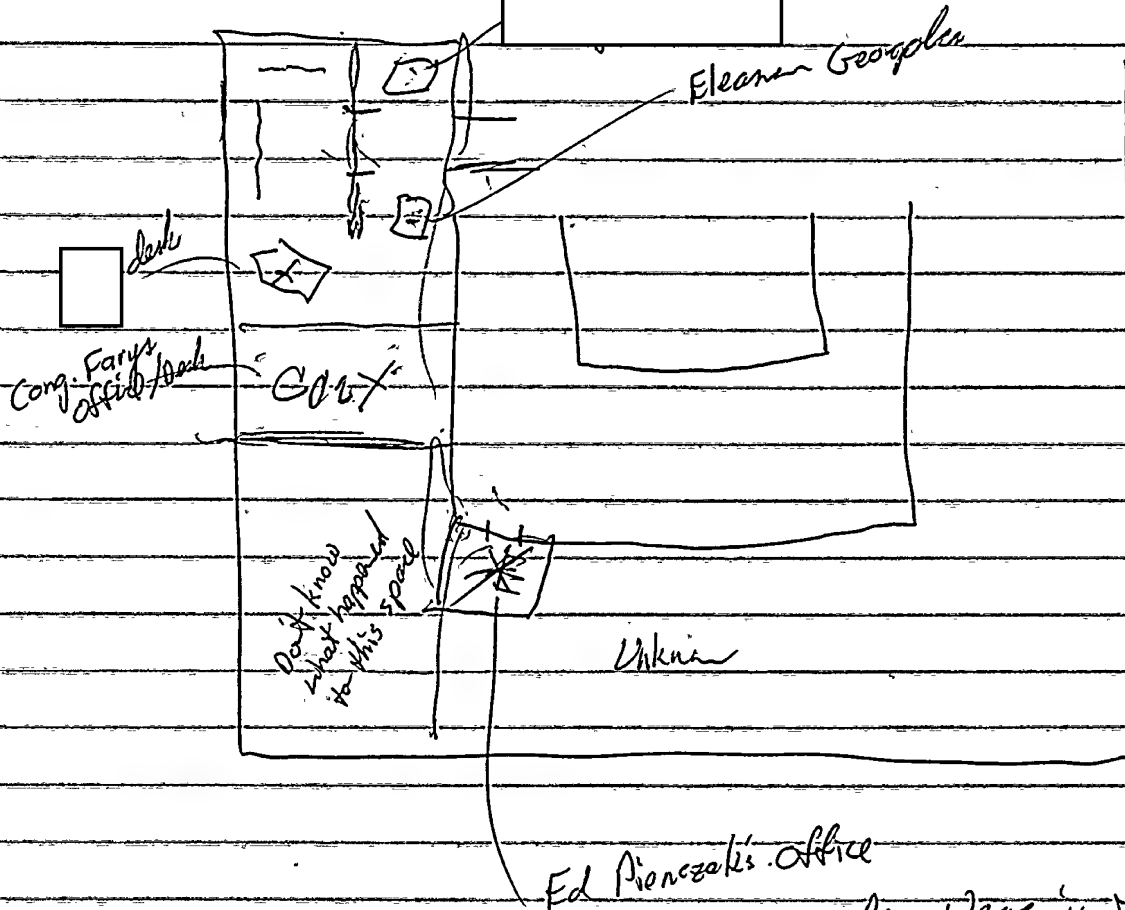 Eleanor
desk
Cong. Farys
office/Desk
"Gary"
Don't know
what happened
to this space
Unknown
Ed Pienczak's office